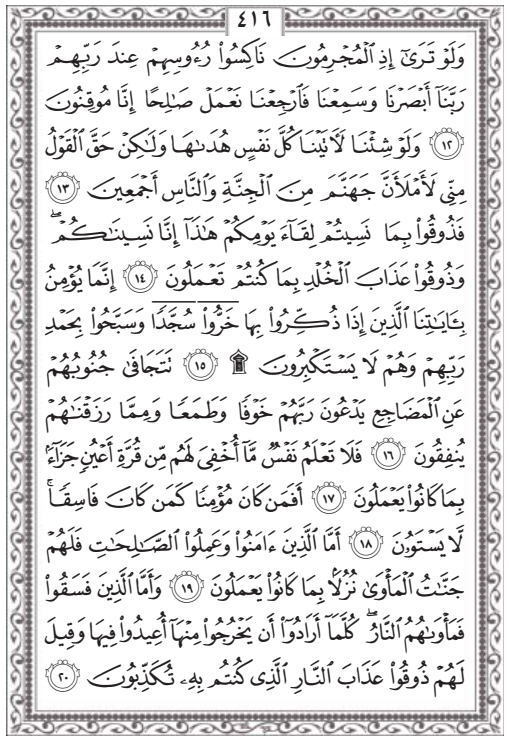 ٤١٦
وَلَوْ تَرَىٰٓ إِذِ ٱلْمُجْرِمُونَ نَاكِسُواْ رُءُوسِهِمْ عِندَ رَبِّهِمْ
رَبَّنَآ أَبْصَرْنَا وَسَمِعْنَا فَٱرْجِعْنَا نَعْمَلْ صَٰلِحًا إِنَّا مُوقِنُونَ
١٢ وَلَوْ شِئْنَا لَأٓتَيْنَا كُلَّ نَفْسٍ هُدَىٰهَا وَلَٰكِنْ حَقَّ ٱلْقَوْلُ
مِنِّى لَأَمْلَأَنَّ جَهَنَّمَ مِنَ ٱلْجِنَّةِ وَٱلنَّاسِ أَجْمَعِينَ ١٣
فَذُوقُواْ بِمَا نَسِيتُمْ لِقَآءَ يَوْمِكُمْ هَٰذَآ إِنَّا نَسِينَٰكُمْ ۖ
وَذُوقُواْ عَذَابَ ٱلْخُلْدِ بِمَا كُنتُمْ تَعْمَلُونَ ١٤ إِنَّمَا يُؤْمِنُ
بِـَٔايَٰتِنَا ٱلَّذِينَ إِذَا ذُكِّرُواْ بِهَا خَرُّواْ سُجَّدًا وَسَبَّحُواْ بِحَمْدِ
رَبِّهِمْ وَهُمْ لَا يَسْتَكْبِرُونَ ۩ ١٥ تَتَجَافَىٰ جُنُوبُهُمْ
عَنِ ٱلْمَضَاجِعِ يَدْعُونَ رَبَّهُمْ خَوْفًا وَطَمَعًا وَمِمَّا رَزَقْنَٰهُمْ
يُنفِقُونَ ١٦ فَلَا تَعْلَمُ نَفْسٌ مَّآ أُخْفِىَ لَهُم مِّن قُرَّةِ أَعْيُنٍ جَزَآءًۢ
بِمَا كَانُواْ يَعْمَلُونَ ١٧ أَفَمَن كَانَ مُؤْمِنًا كَمَن كَانَ فَاسِقًا ۚ
لَّا يَسْتَوُۥنَ ١٨ أَمَّا ٱلَّذِينَ ءَامَنُواْ وَعَمِلُواْ ٱلصَّٰلِحَٰتِ فَلَهُمْ
جَنَّٰتُ ٱلْمَأْوَىٰ نُزُلًۢا بِمَا كَانُواْ يَعْمَلُونَ ١٩ وَأَمَّا ٱلَّذِينَ فَسَقُواْ
فَمَأْوَىٰهُمُ ٱلنَّارُ ۖ كُلَّمَآ أَرَادُوٓاْ أَن يَخْرُجُواْ مِنْهَآ أُعِيدُواْ فِيهَا وَقِيلَ
لَهُمْ ذُوقُواْ عَذَابَ ٱلنَّارِ ٱلَّذِى كُنتُم بِهِۦ تُكَذِّبُونَ ٢٠